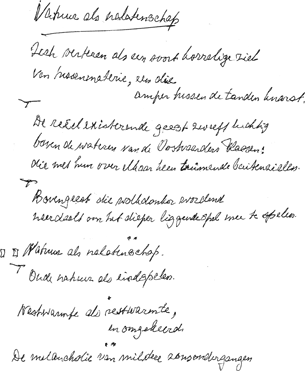 Natuur als nalatenschap
Zich verteren als een soort korrelige ziel
van tussenmaterie, een die
amper tussen de tanden knarst.
De existerende geest zweeft luchtig
boven de wateren van de Oostvaarders Plassen:
die met hun over elkaar heen buitenissen.
Bovengeest die wolkdonker wordend
neerdaalt om het dieper liggende spel mee te spelen.
Natuur als nalatenschap.
Oude natuur als eindspelen.
Nestwarmte als restwarmte,
en omgekeerd
De melancholie van mildere zonsondergangen